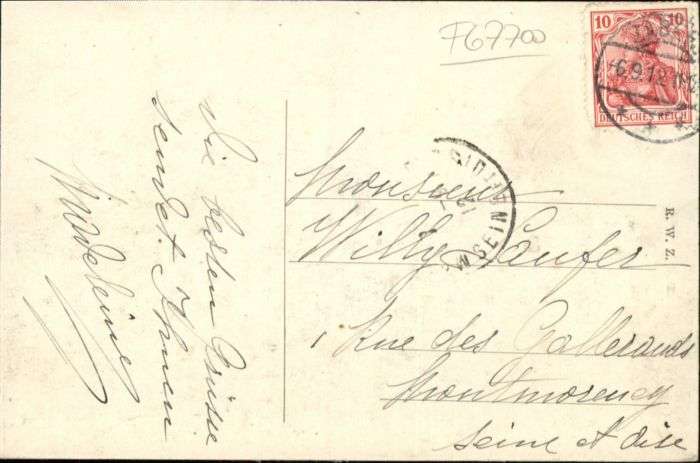 F67700
10 10
DEUTSCHES REICH
-6.9.12
Die besten Grüsse
sendet Ihnen
Madeleine
Monsieur
Willy Laufer
1 Rue des Gallerands
Montmorency
Seine et Oise
R. W. Z.